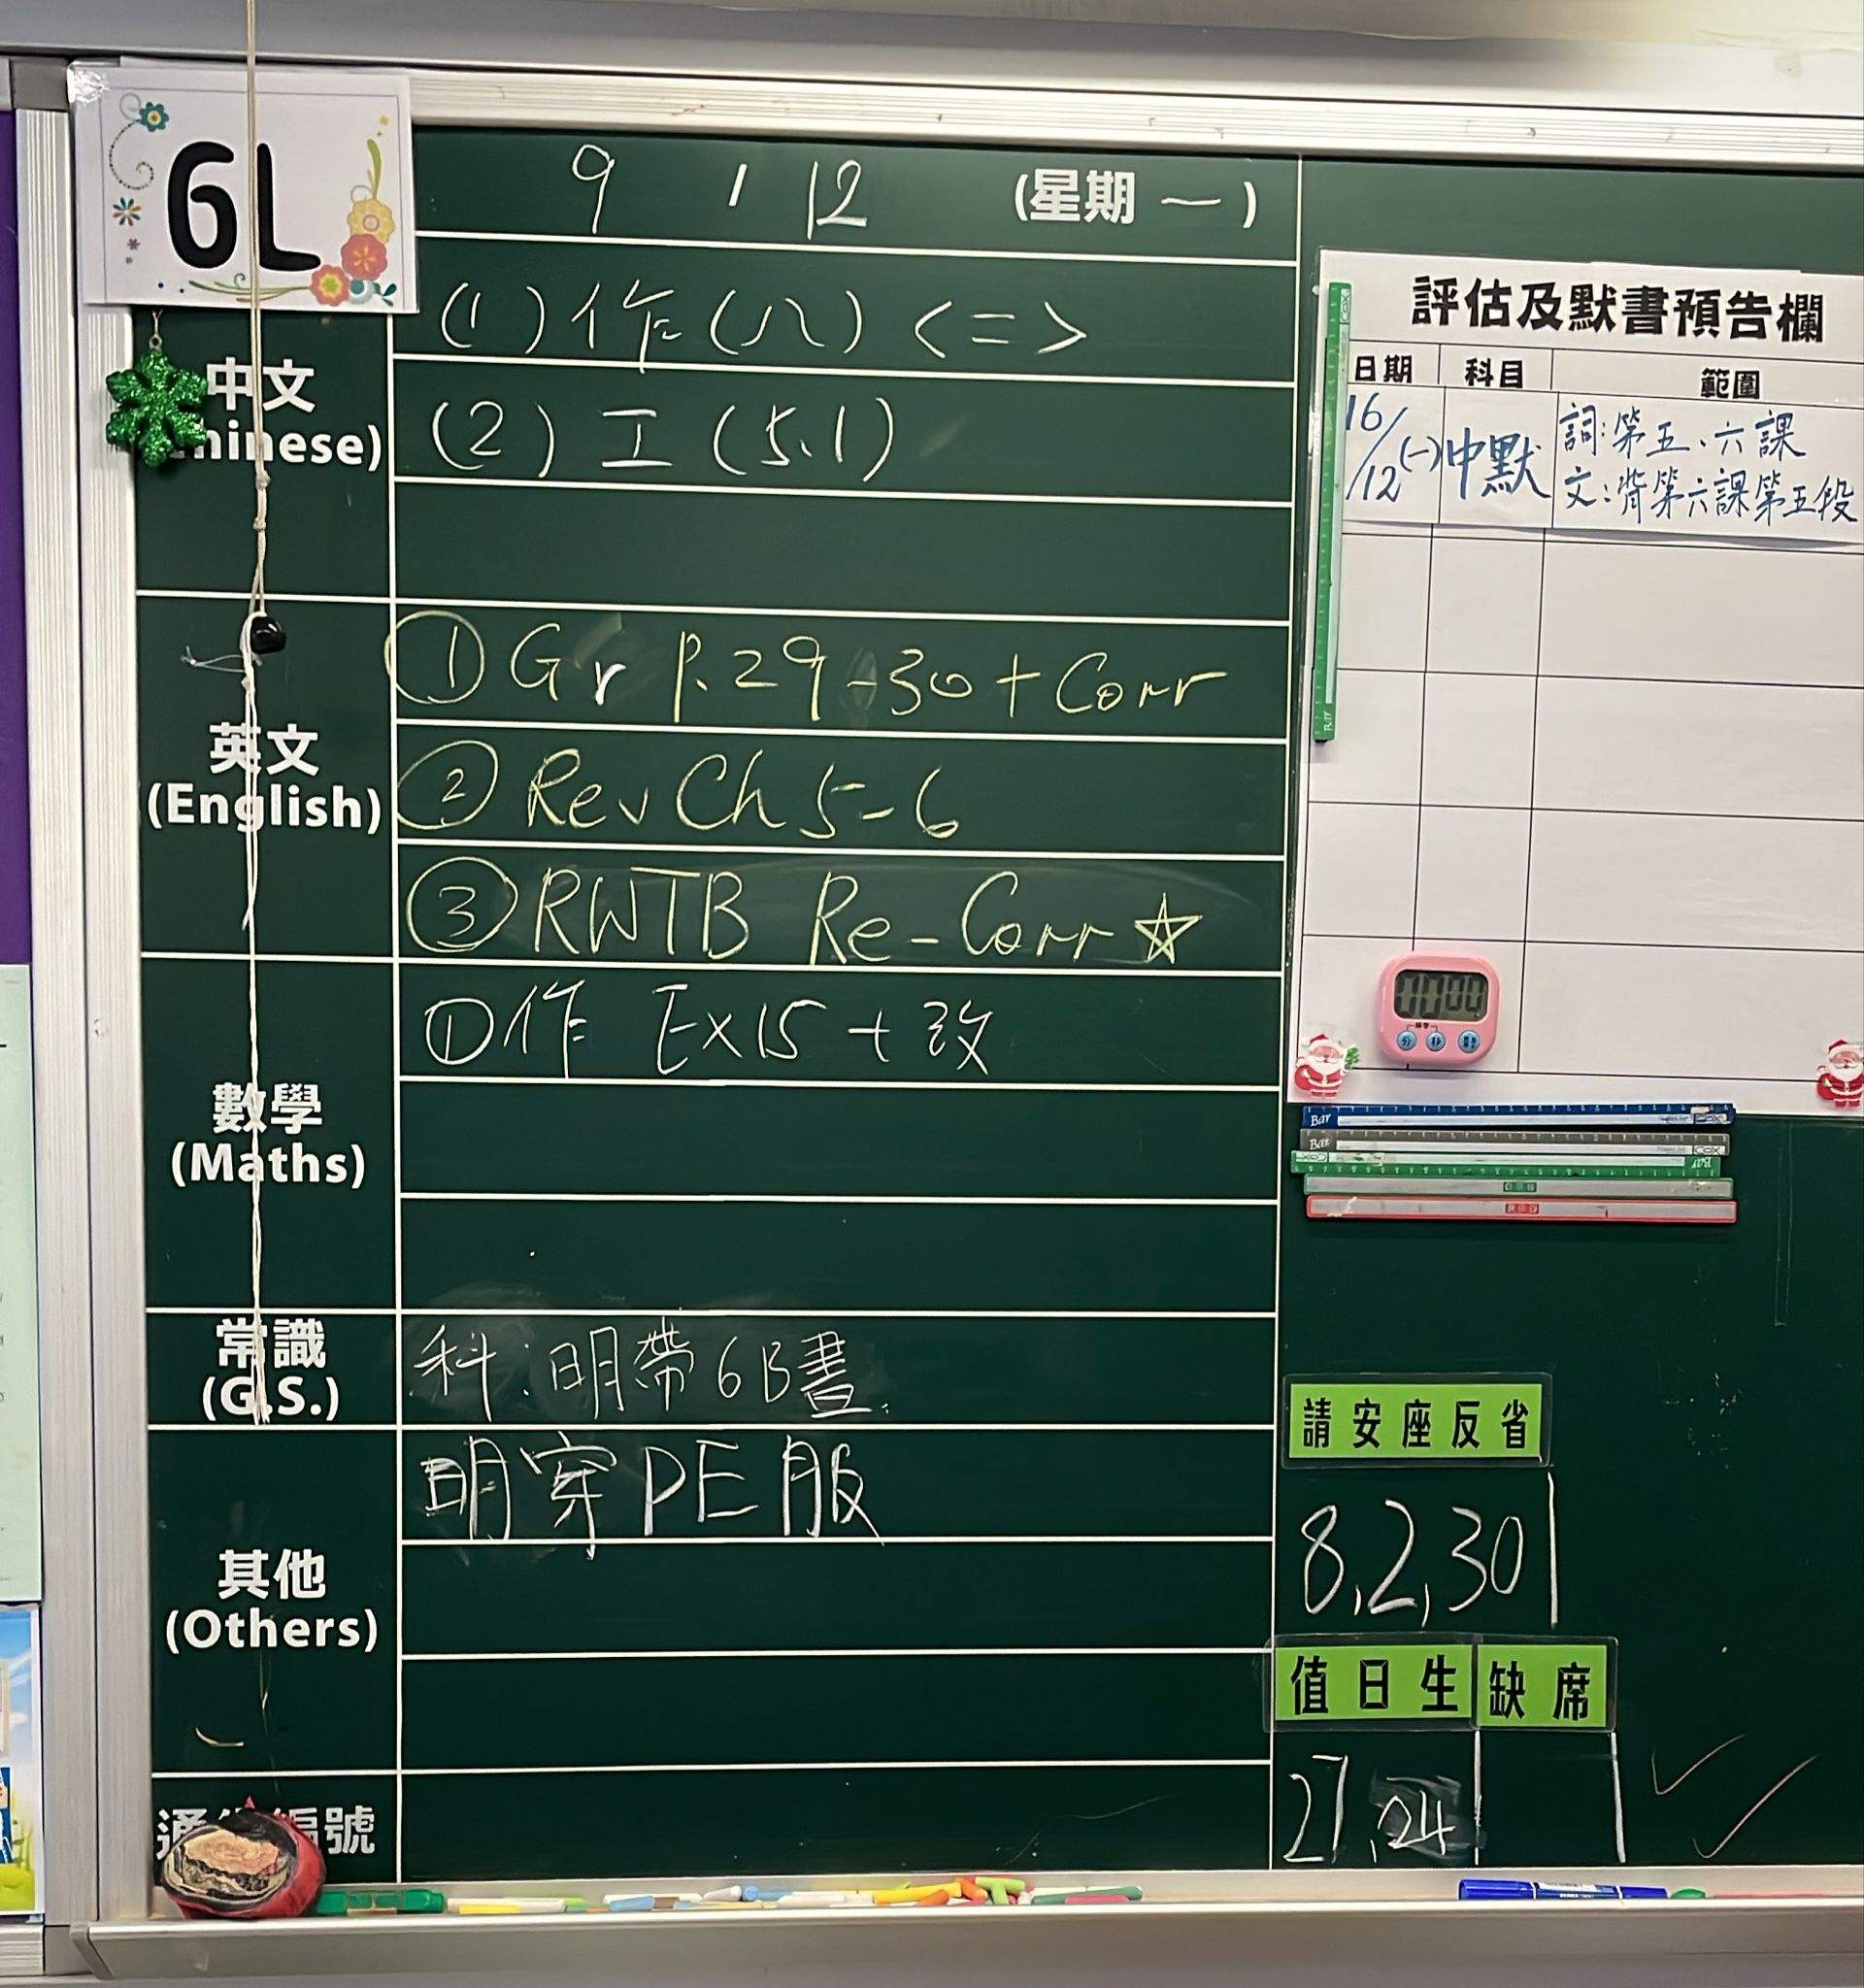 6L
9 / 12 (星期一)
中文
(Chinese)
(1) 作(八) <二>
(2) 工 (5.1)
英文
(English)
① Gr p.29-30 + Corr
② Rev Ch 5-6
③ RWTB Re-Corr ☆
數學
(Maths)
① 作 Ex15 + 改
常識
(G.S.)
科:明帶6B書.
其他
(Others)
明穿PE服
編號
評估及默書預告欄
日期 科目 範圍
16/12(一) 中默 詞:第五、六課
文:背第六課第五段
00:00
請安座反省
8,2,30
值日生 缺席
27,24